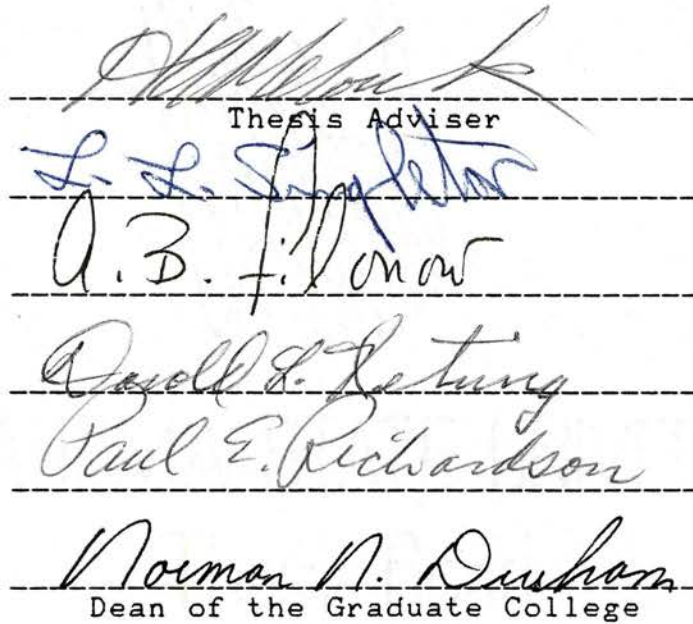 Thesis Adviser
L. L. Singleton
A. B. Filonow
L.
Paul E. Richardson
Norman N. Durham
Dean of the Graduate College